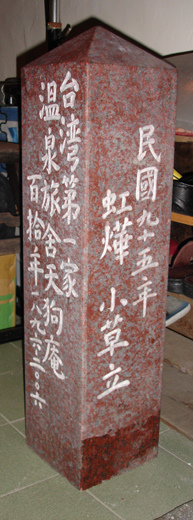 民國九十五年
虹燁 小草立
台湾第一家
溫泉旅舍天狗庵
百拾年 一八九六-二〇〇六